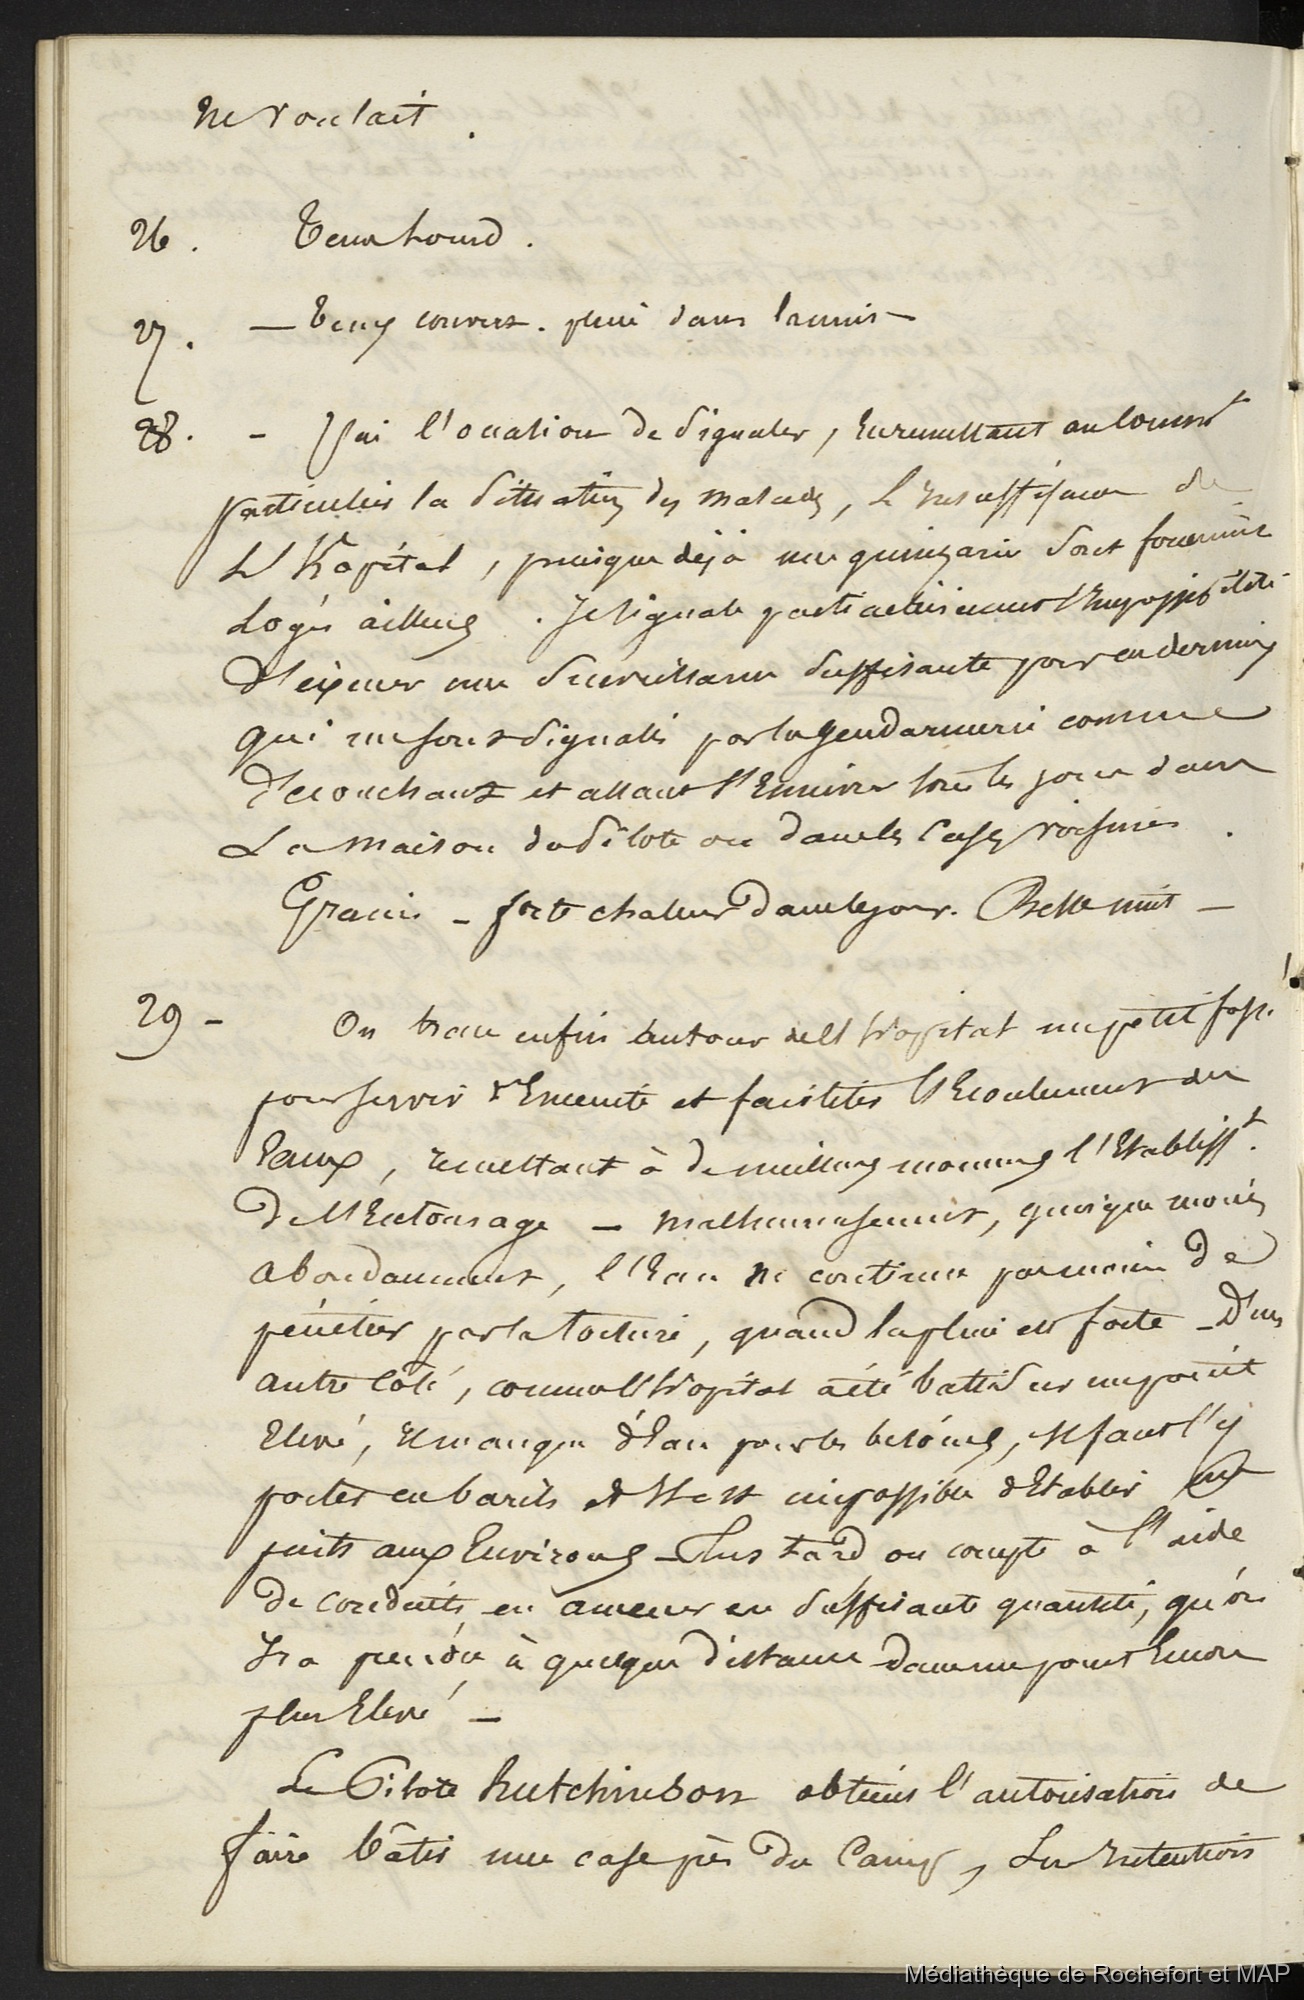 ne voulait.
26. Tems lourd.
27. — Tems couvert. pluie dans la nuit —
28. - J'ai l'occasion de signaler, en remettant au Commt
particulier la situation des malades, L'Insuffisance de
L'Hôpital, puisque déjà une quinzaine sont
Logés ailleurs. Je signale particulièrement l'Impossibilité
D'exercer une surveillance suffisante pour ces derniers
qui me sont signalés par la gendarmerie comme
Découchant et allant s'Enivrer tous les jours dans
La maison du Pilote ou dans les Cases voisines.
Grains - forte chaleur Dans le jour. Belle nuit —
29 - On trace enfin autour de l'hôpital un petit fossé
pour servir d'Enceinte et faciliter l'Ecoulement des
Eaux, remettant à de meilleurs moments l'Etablisst.
De l'Entourage — malheureusement, quoique moins
abondamment, l'Eau ne continue pas moins De
pénétrer par la toiture, quand la pluie est forte — D'un
autre Côté, comme l'hôpital a été bâti sur un point
Elevé, Il manque d'Eau pour les besoins, Il faut l'y
porter en barils et Il est impossible d'Etablir un
puits aux Environs — Plus tard on compte à l'aide
De conduits en amener en suffisante quantité, qu'on
Ira prendre à quelque distance dans un point Encore
plus Elevé —
Le Pilote Hutchinson obtient l'autorisation de
faire bâtir une case près Du Camp, Son Intention
Médiathèque de Rochefort et MAP